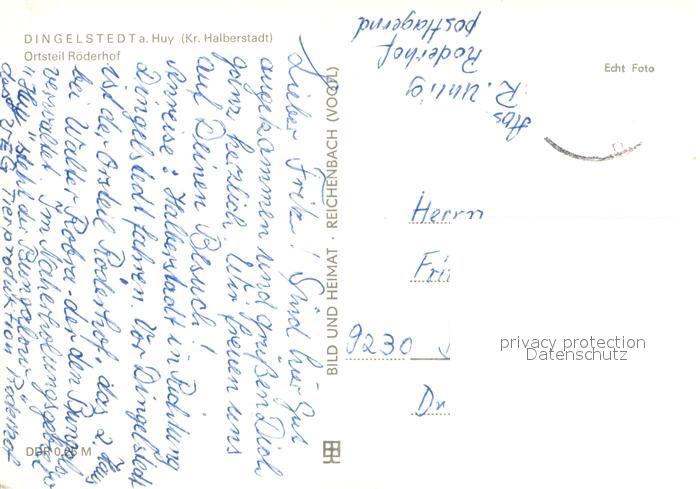 DINGELSTEDT a. Huy (Kr. Halberstadt)
Ortsteil Röderhof
Lieber Fritz! Sind hier gut
angekommen und grüßen Dich
ganz herzlich. Wir freuen uns
auf Deinen Besuch!
Anreise: Halberstadt in Richtung
Dingelstedt fahren. Vor Dingelstedt
ist der Ortsteil Röderhof, das 2. Haus
bei Walter Robra - der den Bungalow
verwaltet. Im Naherholungsgebiet
"Huy" steht der Bungalow
das VEG Tierproduktion Röderhof
DDR 0,25 M
BILD UND HEIMAT · REICHENBACH (VOGTL)
Abs
R. Uhlig
Röderhof
postlagernd
Echt Foto
Herrn
Fri
9230
Dr
privacy protection
Datenschutz